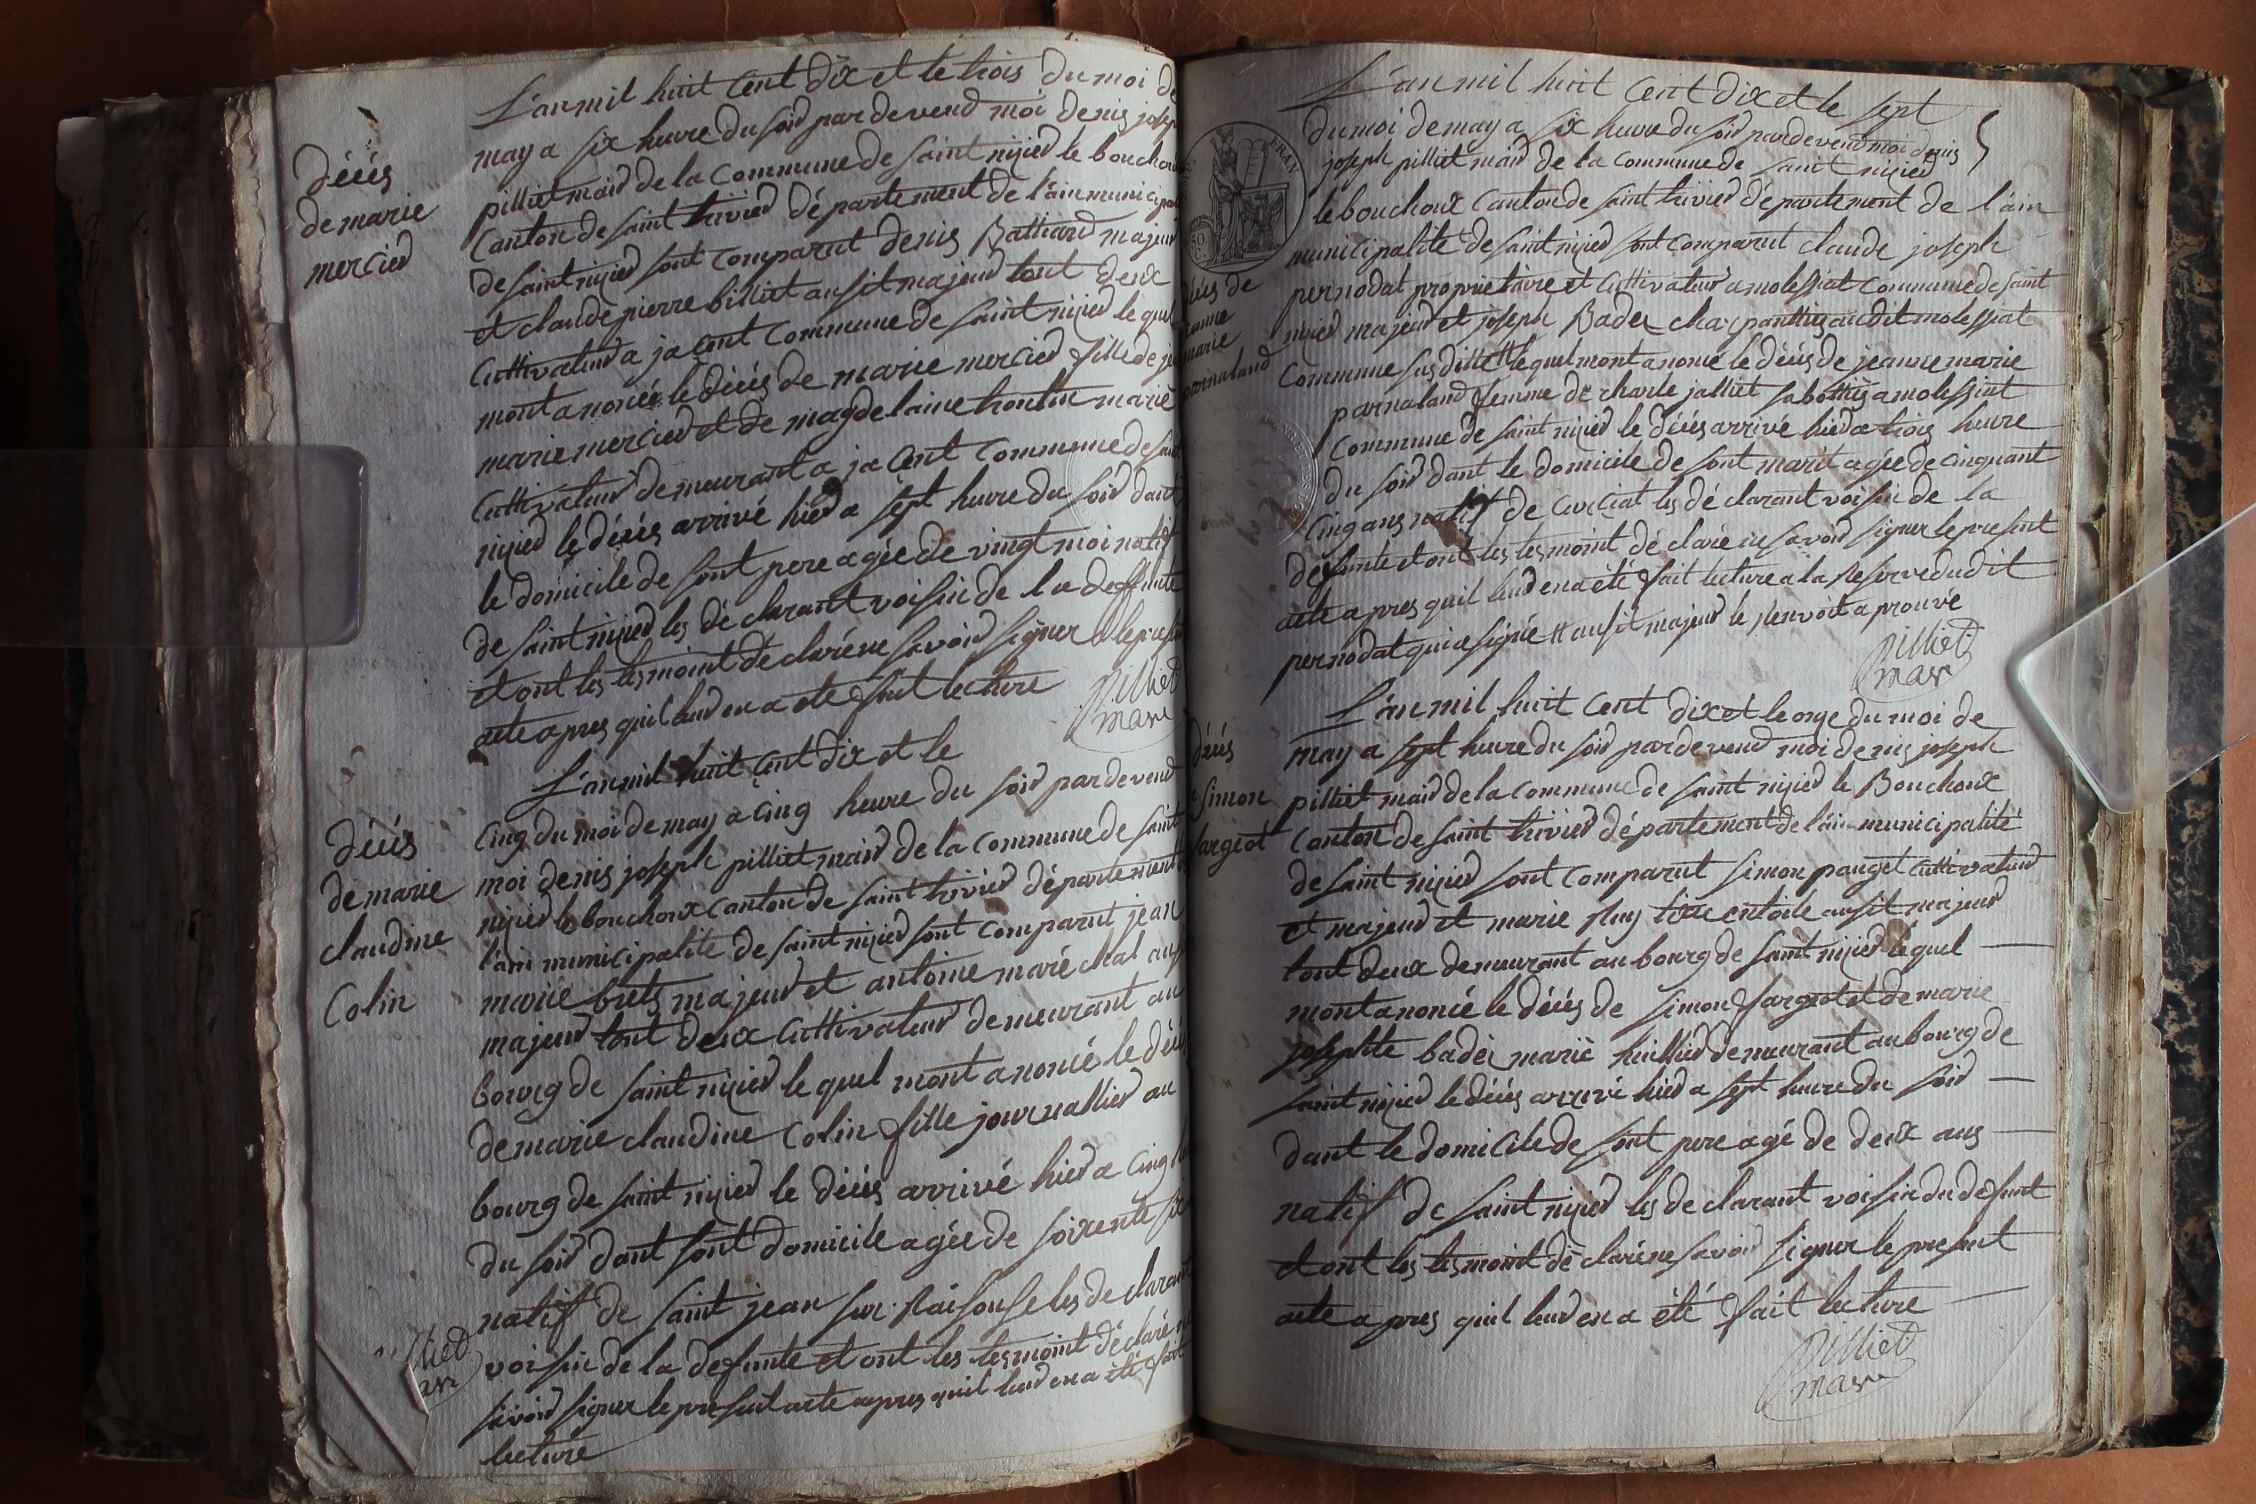 L'an mil huit cent dix et le trois du moi de
may a six heure du soir par devend moi denis joseph
pilliet mair de la commune de saint nizied le bouchoux
canton de saint trivied département de l'ain municipal
de saint nizied sont comparut denis Bathiard majeur
et claude pierre billiet ausit majeur tout deux
cultivateur a jacent commune de saint nizied le quel
mont anoncée le décés de marie mercied fille de je
marie mercied et de magdelaine marié
cultivateur demeurant a jacent commune de saint
nizied le décés arrivé hied a sept heure du soir dant
le domicile de sont pere agée de vingt moi natif
de saint nizied les déclarant voisin de la deffunte
et ont les tesmoint déclaré ne savoir signer le present
acte apres quil leur en a eté fait lecture
pilliet
mair
décés
de marie
mercied
L'an mil huit cent dix et le
cinq du moi de may a cinq heure du soir par devend
moi denis joseph pilliet mair de la commune de saint
nizied le bouchoux canton de saint trivied département
l'ain municipalité de saint nizied sont comparut jean
marie brets majeur et antoine maréchal aus
majeur tout deux cultivateur demeurant au
bourg de saint nizied le quel mont anoncé le décé
de marie claudine Colin fille journallied au
bourg de saint nizied le décés arrivé hied a cinq
du soir dant sont domicile agée de soixente
natif de saint jean sur raisouse les declarant
voisin de la defunte et ont les tesmoint déclaré
savoir signer le present acte apres quil leur en a été fait
lecture
décés
de marie
claudine
Colin
lliet
L'an mil huit cent dix et le sept
du moi de may a six heure du soir par devend moi denis
joseph pilliet mair de la commune de saint nizied
le bouchoux canton de saint trivied département de l'ain
municipalité de saint nizied sont comparut claude joseph
pernodat proprietaire et cultivateur a molessiat commune de saint
nizied majeur et joseph Badez charpanttié audit molessiat
commune susditte # le quel mont anoncé le décés de jeanne marie
parnaland femme de charle jalliet sabottié a molessiat
commune de saint nizied le décés arrivé hied a trois heure
du soir dant le domicile de sont marit agée de cinquant
cinq ans natif de curciat les déclarant voisin de la
defunte et ont les tesmoint déclaré ne savoir signer le present
acte apres quil leur en a été fait lecture a la reserve dudit
pernodat qui a signée # ausit majeur le renvoit aprouvé
pilliet
mair
FRAN
décés de
jeanne
marie
parnaland
L'an mil huit cent dix et le onze du moi de
may a sept heure du soir par devend moi denis joseph
pilliet mair de la commune de saint nizied le Bouchoux
canton de saint trivied département de l'ain municipalité
de saint nizied sont comparut simon pauget cultivateur
et majeur et marie ausit majeur
tout deux demeurant au bourg de saint nizied le quel
mont anoncé le décés de simon fargeot et de marie
josephte badez marié huillied demeurant au bourg de
saint nizied le décés arrivé hied a sept heure du soir
dant le domicile de sont pere agé de deux ans
natif de saint nizied les declarant voisin du defunt
et ont les tesmoint déclaré ne savoir signer le present
acte apres quil leur en a été fait lecture
pilliet
mair
décés
simon
fargeot